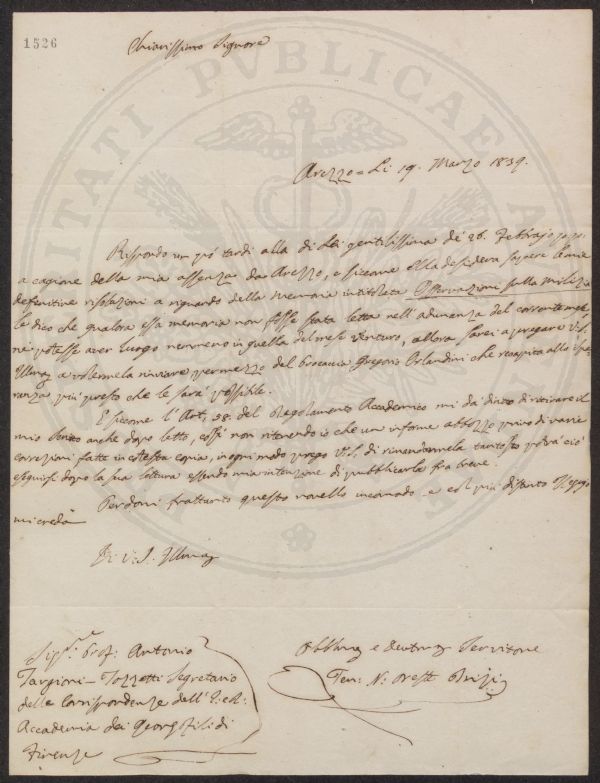 1526
Chiarissimo Signore
Arezzo = Li 19. Marzo 1839.
Rispondo un pò tardi alla di Lei gentilissima de' 26. Febbrajo pp
a cagione della mia assenza da Arezzo, e siccome Ella desidera sapere le mie
definitive risoluzioni a riguardo della Memoria intitolata Osservazioni sulla Milizia
le dico che qualora essa memoria non fosse stata letta nell'adunanza del corrente mese
nè potesse aver luogo nemmeno in quella del mese venturo, allora sarei a pregare V.S.
Illma a volermela rinviare per mezzo del Procaccia Gregorio Orlandini che recapita allo Spe-
ranza più presto che le sarà possibile.
E siccome l'Art. 58. del Regolamento Accademico mi da diritto di ritirare il
mio Scritto anche dopo letto, così non ritenendo io che un informe abbozzo privo di varie
correzioni fatte in cotesta copia, in ogni modo prego V.S. di rimandarmela tantosto potrà ciò
eseguirsi dopo la sua lettura essendo mia intenzione di pubblicarla fra breve.
Perdoni frattanto questo novello incomodo e col più distinto ossequio
mi creda
Di V: S: Illma
Sigr. Prof: Antonio
Targioni-Tozzetti Segretario
delle Corrispondenze dell'I: e R:
Accademia dei Georgofili di
Firenze
Obblmo e Devtmo Servitore
Ten: N: Oreste Brizi
PVBLICAE